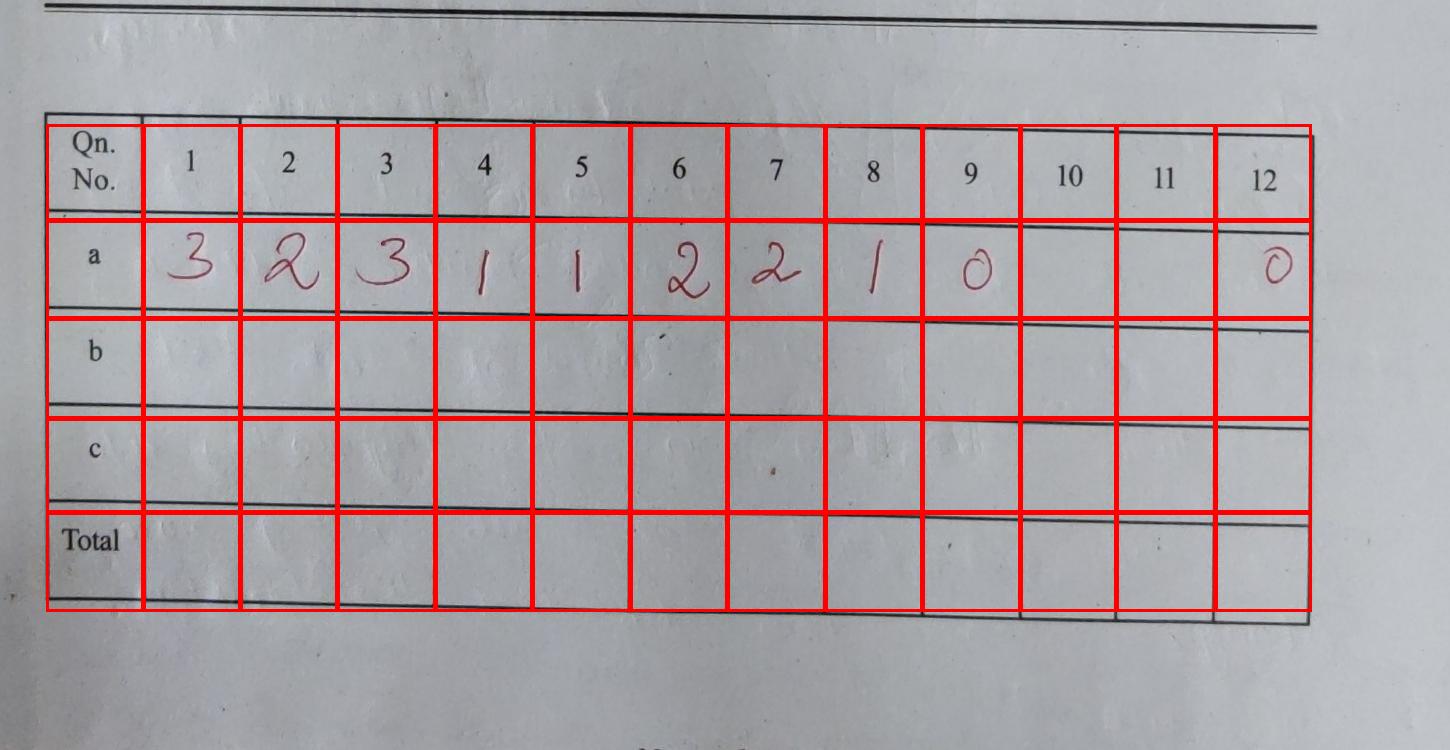 Qn. No. 1 2 3 4 5 6 7 8 9 10 11 12
a 3 2 3 1 1 2 2 1 0 0
b
c
Total